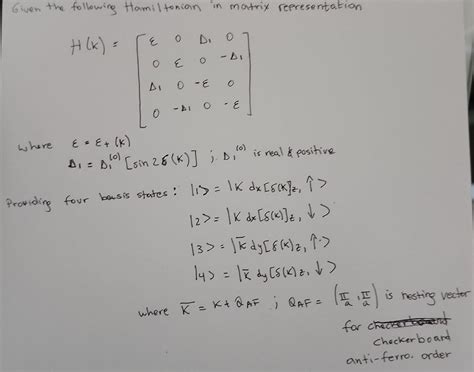 Given the following Hamiltonian in matrix representation
H(k) = [ ε 0 Δ₁ 0
0 ε 0 -Δ₁
Δ₁ 0 -ε 0
0 -Δ₁ 0 -ε ]
where ε = ε₊(k)
Δ₁ = Δ₁⁽⁰⁾ [sin 2δ(k)] ; Δ₁⁽⁰⁾ is real & positive
Providing four basis states: |1> = |k dx[δ(k)]z, ↑>
|2> = |k dx[δ(k)]z, ↓>
|3> = |k̄ dy[δ(k)z, ↑>
|4> = |k̄ dy[δ(k)z, ↓>
where k̄ = k + Q_AF ; Q_AF = (π/a, π/a) is nesting vector
for
checkerboard
anti-ferro. order